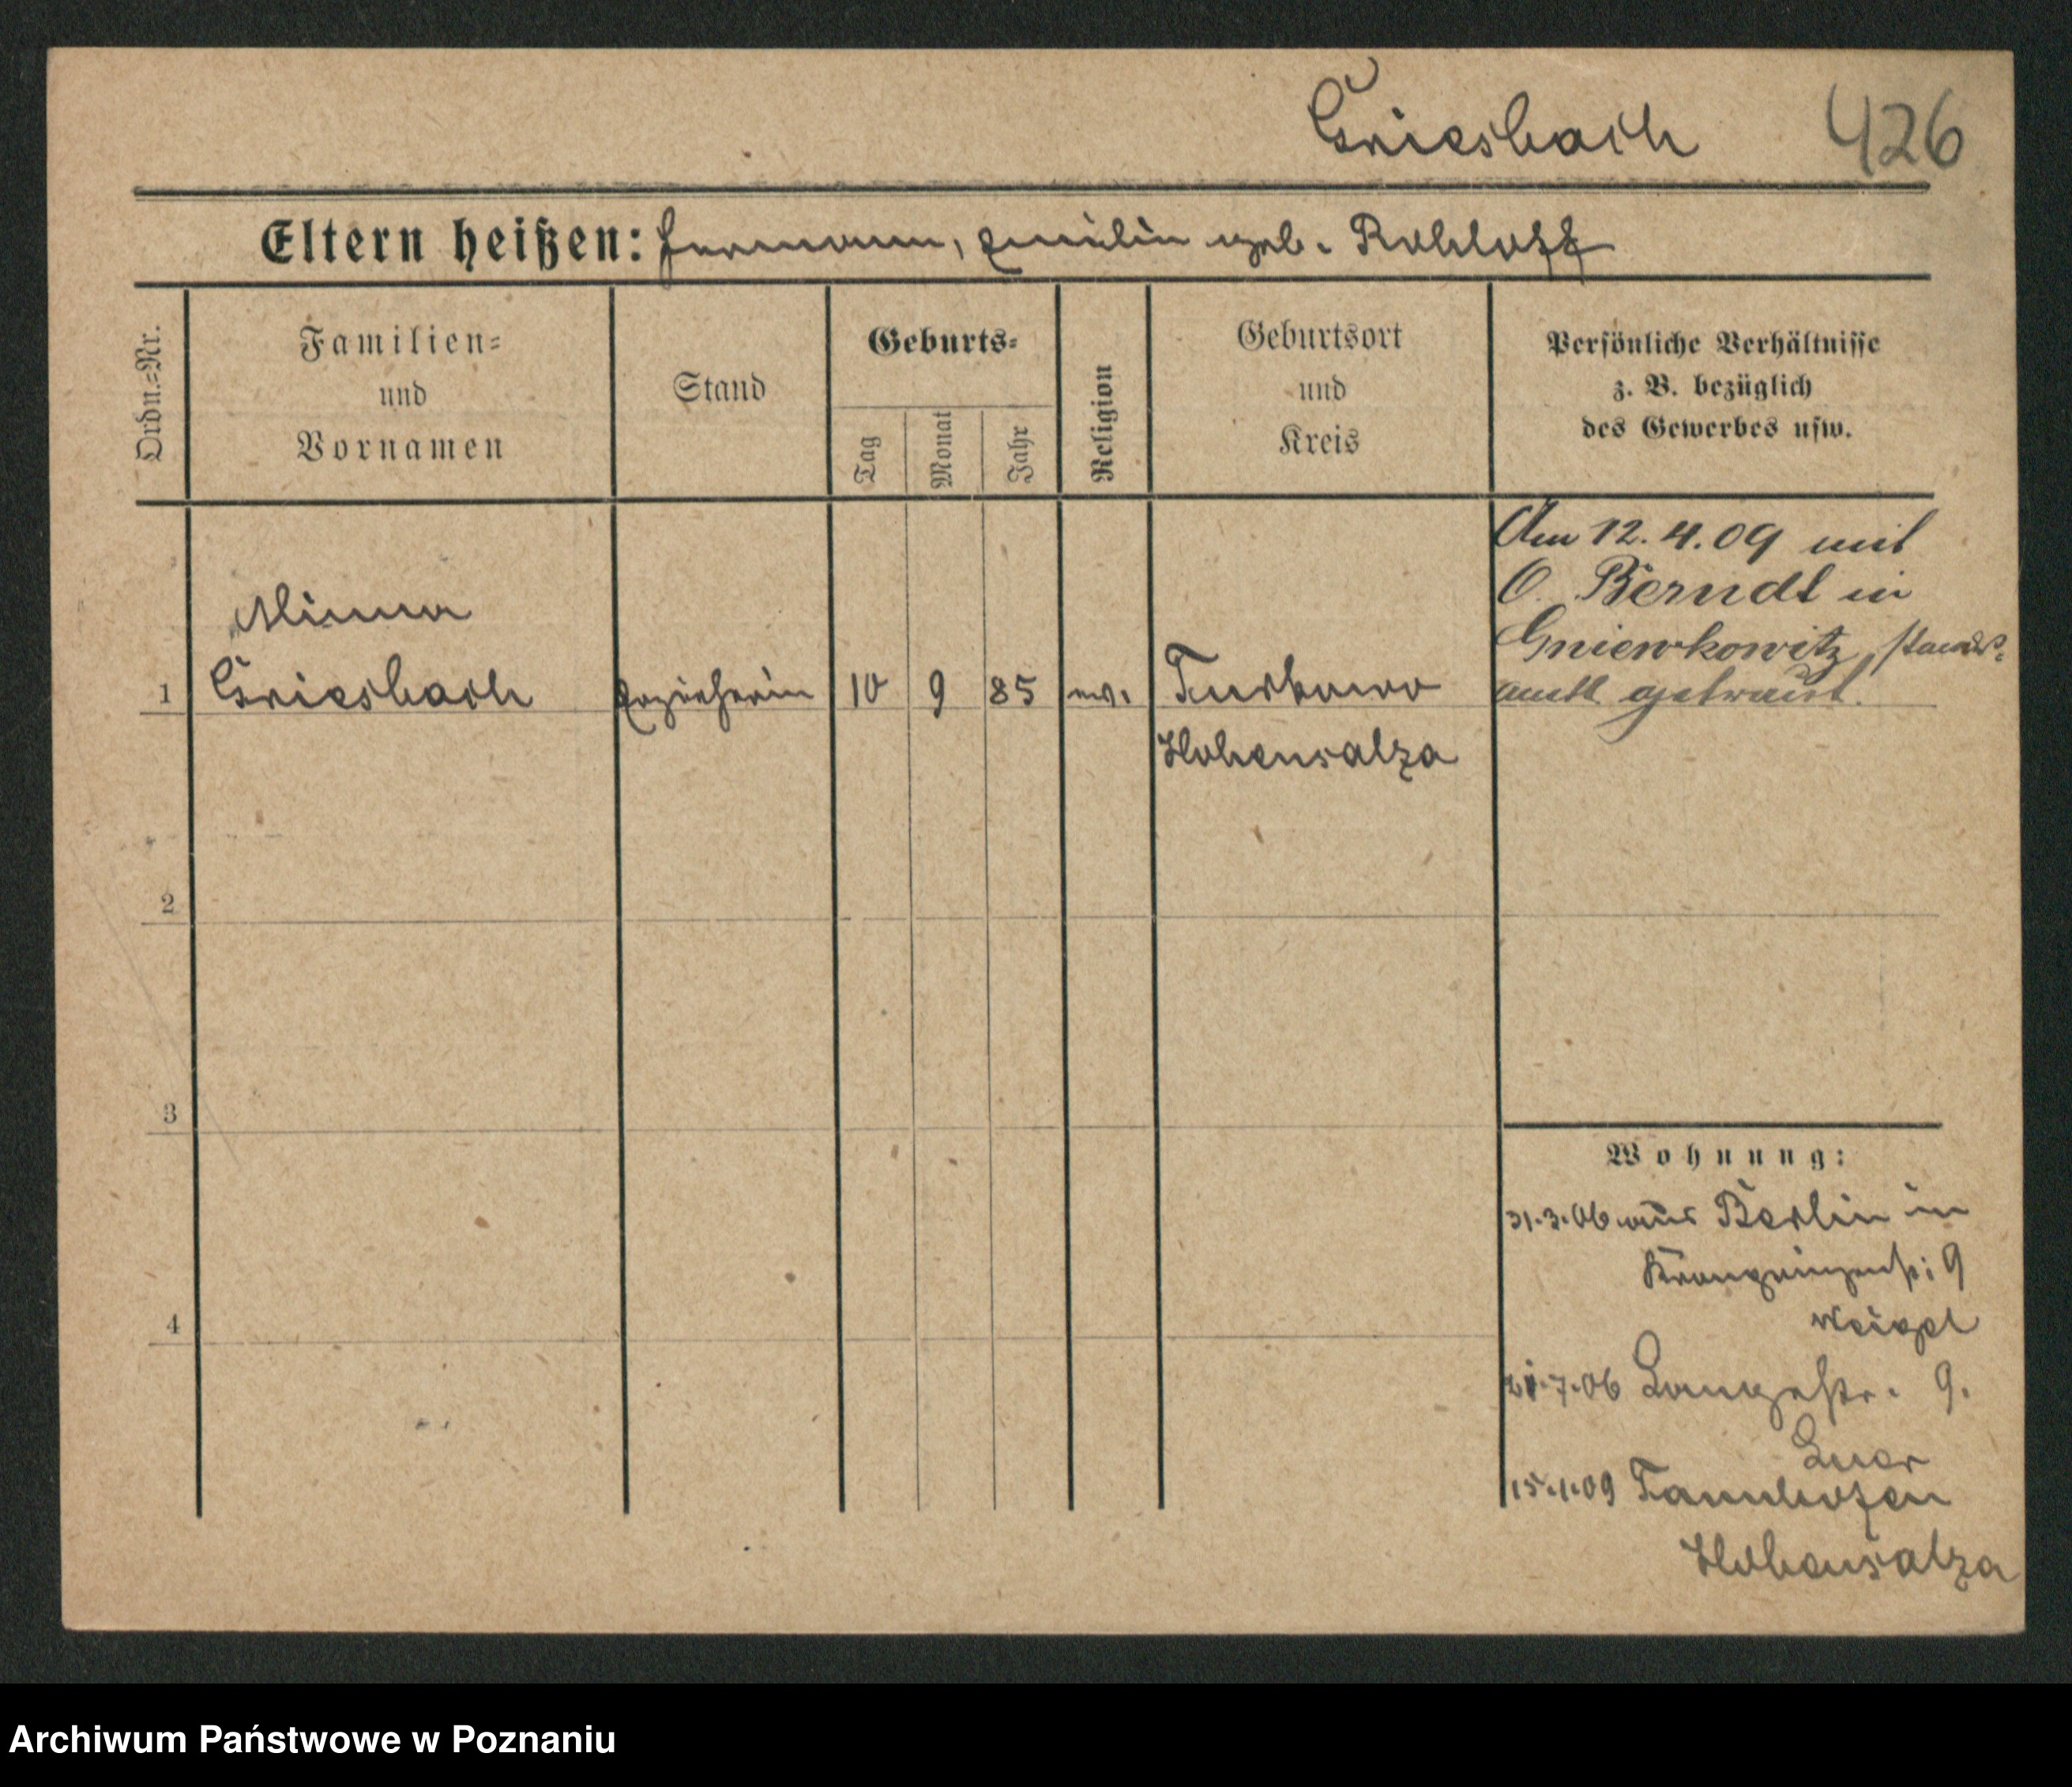 Griesbach 426
Eltern heißen: Hermann, Emilie geb. Rohloff
Ordn.-Nr.
Familien-
und
Vornamen
Stand
Geburts-
Tag
Monat
Jahr
Religion
Geburtsort
und
Kreis
Persönliche Verhältnisse
z. B. bezüglich
des Gewerbes usw.
Am 12.4.09 mit
O. Berndt in
Gniewkowitz standes-
amtl. getraut.
Minna
1 Griesbach Erzieherin 10 9 85 ev.
Hohensalza
2
3
4
Wohnung:
31.3.06 aus Berlin in
Kronprinzenstr. 9
Weigel
21.7.06 Langestr. 9.
15.1.09 Tannhofen
Hohensalza
Archiwum Państwowe w Poznaniu